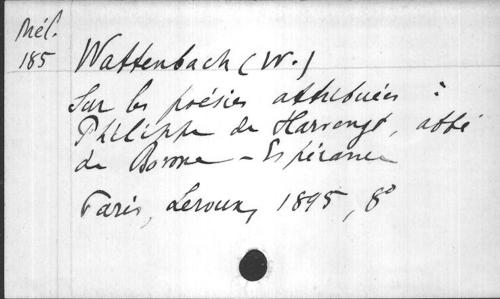 Mél.
185
Wattenbach (W.)
Sur les poésies attribuées à
Philippe de Harvengt, abbé
de Bonne-Espérance
Paris, Leroux, 1895, 8°